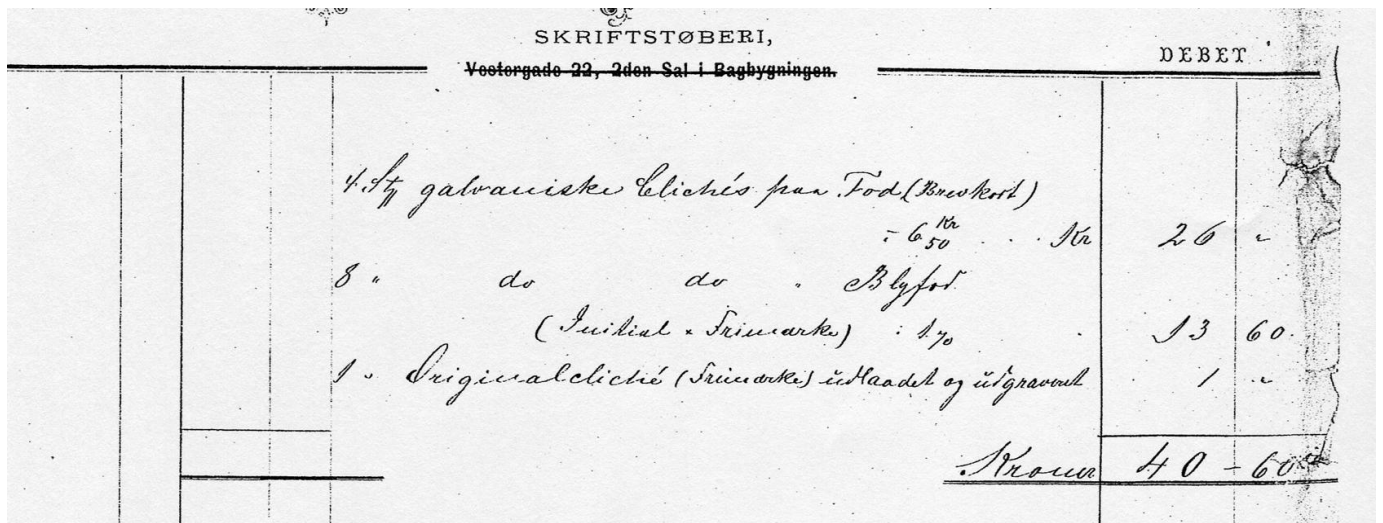 SKRIFTSTØBERI,
Vestergade 22, 2den Sal i Bagbygningen.
DEBET
4 Stk galvaniske Clichés paa Fod (Brevkort)
: 6 Kr 50 . . Kr 26 "
8 " do do " Blyfod
(Initial " Frimærke) : 1.70 . 13 60.
1 " Originalcliché (Frimærke) udlaadet og udgraveret 1 "
Kroner 40 – 60